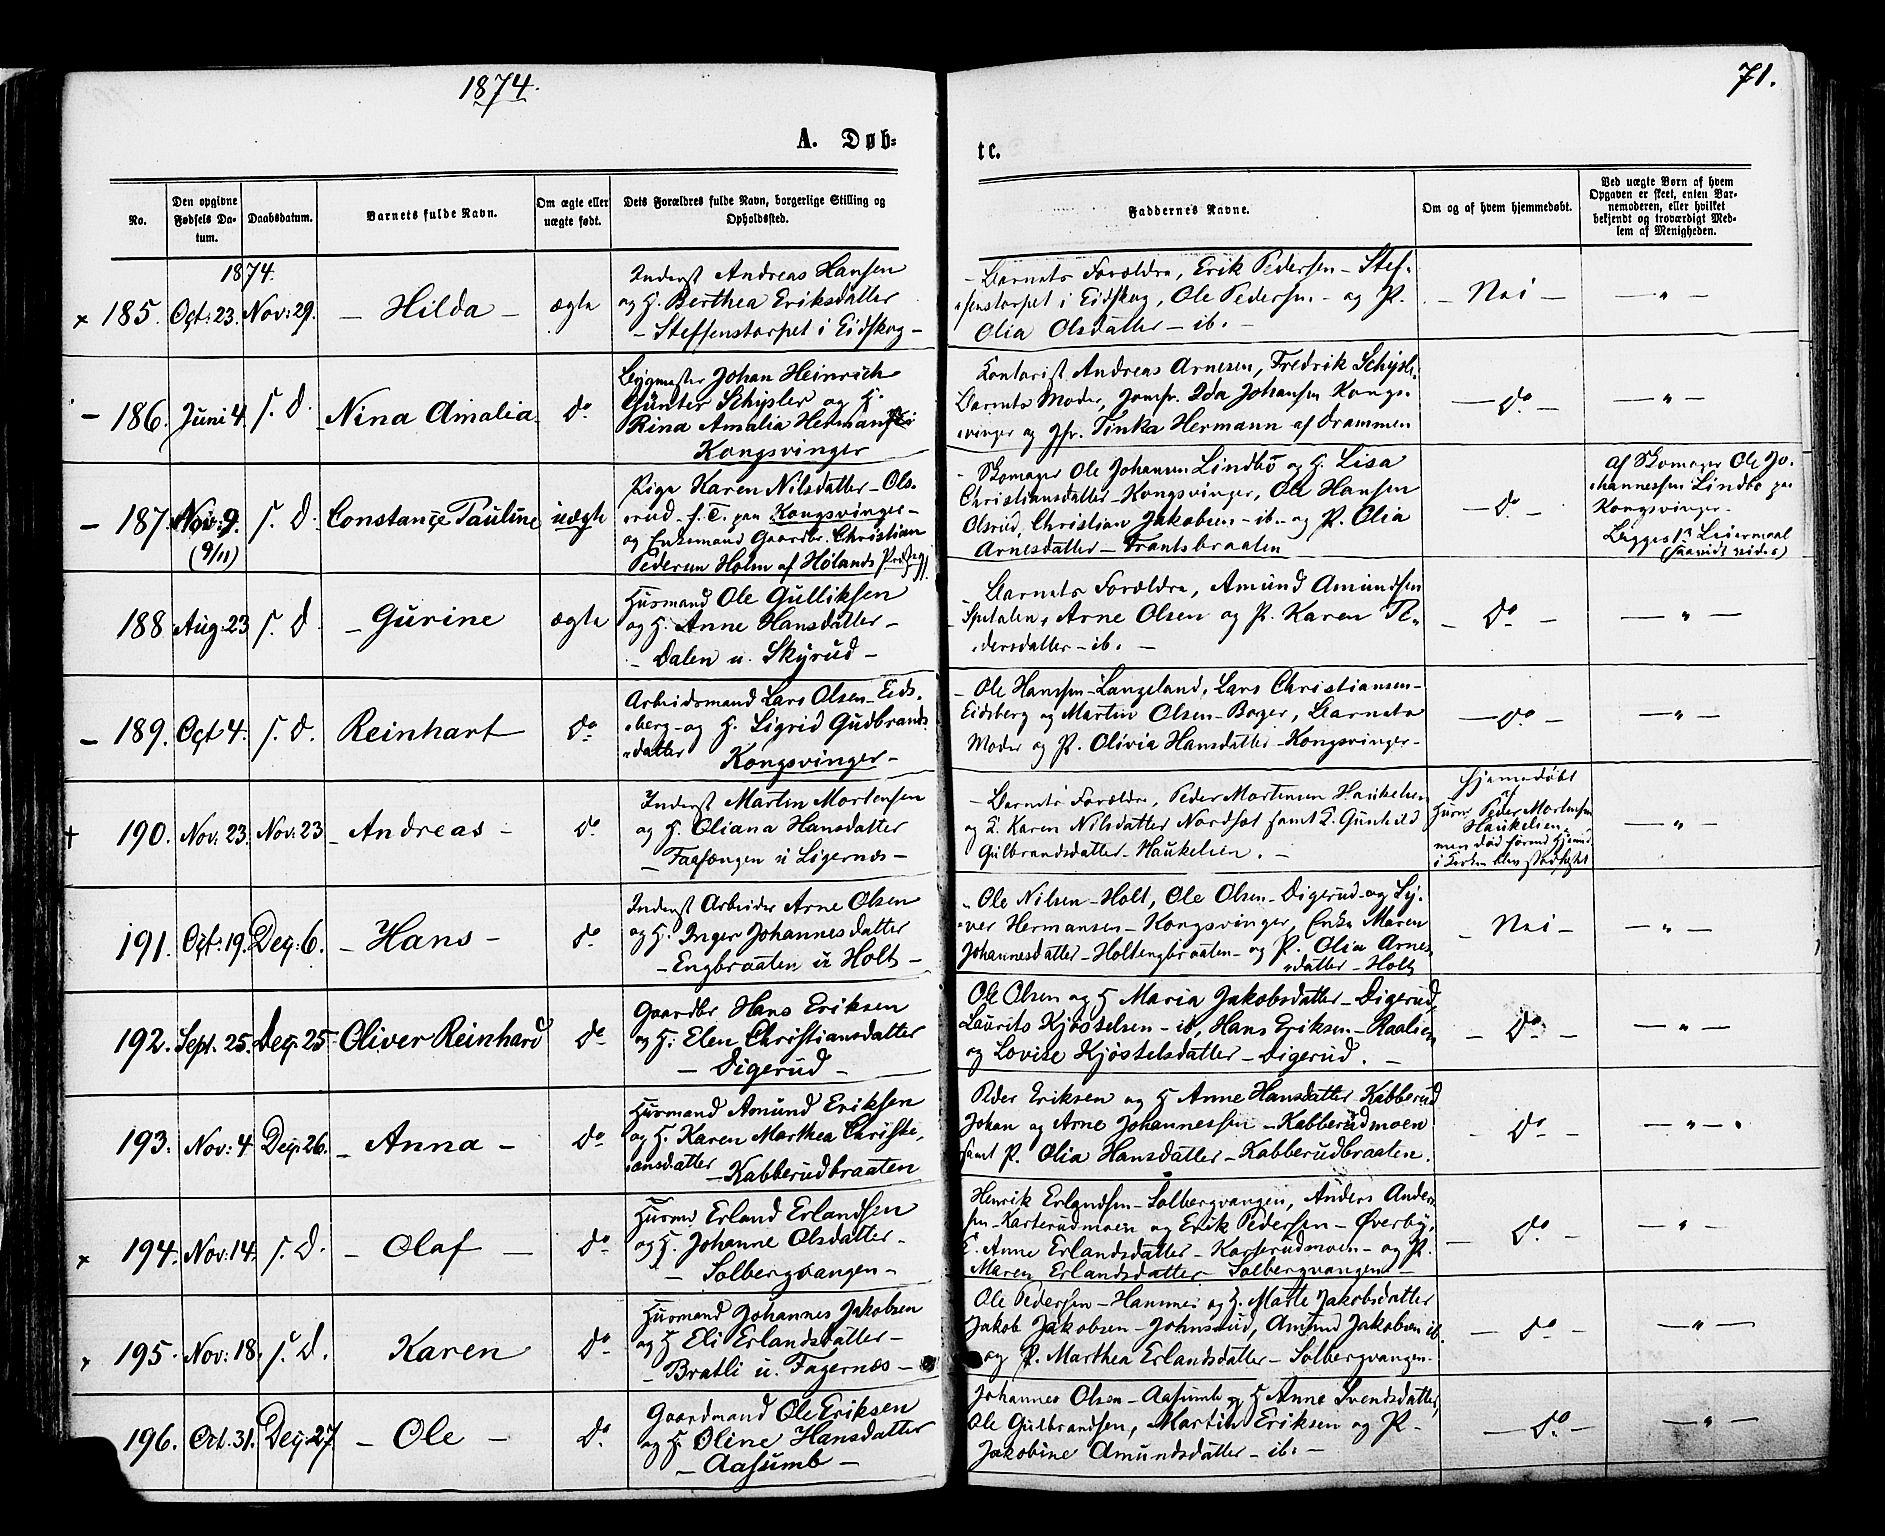 1874.
71.
A. Døb=
te.
No.
Den opgivne Fødsels Datum.
Daabsdatum.
Barnets fulde Navn.
Om ægte eller uægte født.
Dets Forældres fulde Navn, borgerlige Stilling og Opholdssted.
Faddernes Navne.
Om og af hvem hjemmedøbt.
Ved uægte Børn af hvem Opgaven er skeet, enten Barnemoderen, eller hvilket bekjendt og troværdigt Medlem af Menigheden.
1874.
× 185. Oct: 23. Nov: 29. – Hilda – ægte
Inderst Andreas Hansen
og H. Berthea Eriksdatter
– Steffenstorpet i Eidskog –
– Barnets Forældre, Erik Pedersen – Stef-
fenstorpet i Eidskog, Ole Pedersen – og P.
Olia Olsdatter – ib. –
– Nei –
– " –
– 186. Juni 4. s. D. Nina Amalia do
Bygmester Johan Heinrich
Günter Schysler og H.
Rina Amalia Hermansen
Kongsvinger
Kontorist Andreas Arnesen, Fredrik Schysler
Barnets Moder, Jomfr. Ida Johansen Kongs-
vinger og Jfr. Tinka Hermann af Drammen
– do –
– " –
– 187. Nov: 9. (9/11) s. D. Constance Pauline uægte
Pige Karen Nilsdatter – Ols-
rud – f. T. paa Kongsvinger –
og Enkemand Gaardbr. Christian
Pedersen Holm af Hølands Præstegj.
– Skomager Ole Johansen Lindbø og H. Lisa
Christiansdatter – Kongsvinger, Ole Hansen
Olsrud, Christian Jakobsen – ib. – og P. Olia
Arnesdatter – Frantsbraaten
– do –
af Skomager Ole Jo-
hannessen Lindbø paa
Kongsvinger –
Begges 1ste Leiermaal
(saavidt vides)
188 Aug: 23 s. D – Gurine ægte
Husmand Ole Gulliksen
og H. Anne Hansdatter –
– Dalen u. Skyrud –
– Barnets Forældre, Amund Amundsen
Spetalen, Arne Olsen og P. Karen Pe-
dersdatter – ib. –
– do –
– " –
– 189. Oct 4. s. D. Reinhart do
Arbeidsmand Lars Olsen – Eids-
berg – og H. Sigrid Gudbrands-
datter
Kongsvinger –
– Ole Hanssen – Langeland, Lars Christiansen –
Eidsberg og Martin Olsen – Borger, Barnets
Moder og P. Olivia Hansdatter – Kongsvinger –
– do –
– " –
† 190. Nov: 23. Nov: 23 – Andreas – do
Inderst Martin Mortensen
og H. Oliana Hansdatter
– Faasængen u Ligernæs –
– Barnets Forældre, Peder Mortensen Haukelien
og E. Karen Nilsdatter Nordsæt samt E. Gunhild
Gulbrandsdatter – Haukelien. –
Hjemmedøbt
af
Husm. Peder Mortensen
Haukelien –
men død førend Hjemmed.
i Kirken blev stadfæstet
– " –
191. Oct: 19. Dec: 6. – Hans – do
Inderst Arbeider Arne Olsen
og H. Inger Johannesdatter
– Engbraaten u Holt –
– Ole Nilsen – Holt, Ole Olsen – Digerud – og Sy-
ver Hermansen – Kongsvinger, Enke Maren
Johannesdatter – Holtengbraaten – og P. Olia Arnes-
datter – Holt
– Nei –
– " –
192. Sept. 25. Dec: 25 – Oliver Reinhard do
Gaardbr Hans Eriksen
og H. Elen Christiansdatter
– Digerud –
Ole Olsen og H Maria Jakobsdatter – Digerud,
Laurits Kjøstelsen – ib, Hans Eriksen – Raalien
og Lovise Kjøstelsdatter – Digerud. –
– do –
– " –
193. Nov: 4 Dec: 26. – Anna – do
Husmand Amund Eriksen
og H. Karen Marthea Christi-
ansdatter – Kabberudbraaten
Peder Eriksen og H Anne Hansdatter Kabberud
Johan og Arne Johannessen – Kabberudmoen
samt P. Olia Hansdatter – Kabberudbraaten.
– do –
– " –
× 194. Nov: 14. s. D. – Olaf – do
Husmd Erland Erlandsen
og H. Johanne Olsdatter –
– Solbergvangen –
Henrik Erlandsen – Solbergvangen, Anders Ander-
sen – Karterudmoen og Erik Pedersen – Øverby,
E. Anne Erlandsdatter – Karterudmoen – og P.
Maren Erlandsdatter Solbergvangen –
– do –
– " –
× 195. Nov: 18. s. D. Karen do
Husmand Johannes Jakobsen
og H Eli Erlandsdatter –
– Bratli u. Fagernæs –
Ole Pedersen – Hammer og H. Marte Jakobsdatter
Jakob Jakobsen – Johnsrud, Amund Jakobsen ib.
og P. Marthea Erlandsdatter – Solbergvangen –
– do –
– " –
196. Oct. 31. Dec: 27 – Ole – do
Gaardmand Ole Eriksen
og H. Oline Hansdatter
– Aasumb –
Johannes Olsen – Aasumb og H Anne Svendsdatter,
Ole Gulbrandsen, Martin Eriksen og P.
Jakobine Amundsdatter – ib. –
– do –
– " –